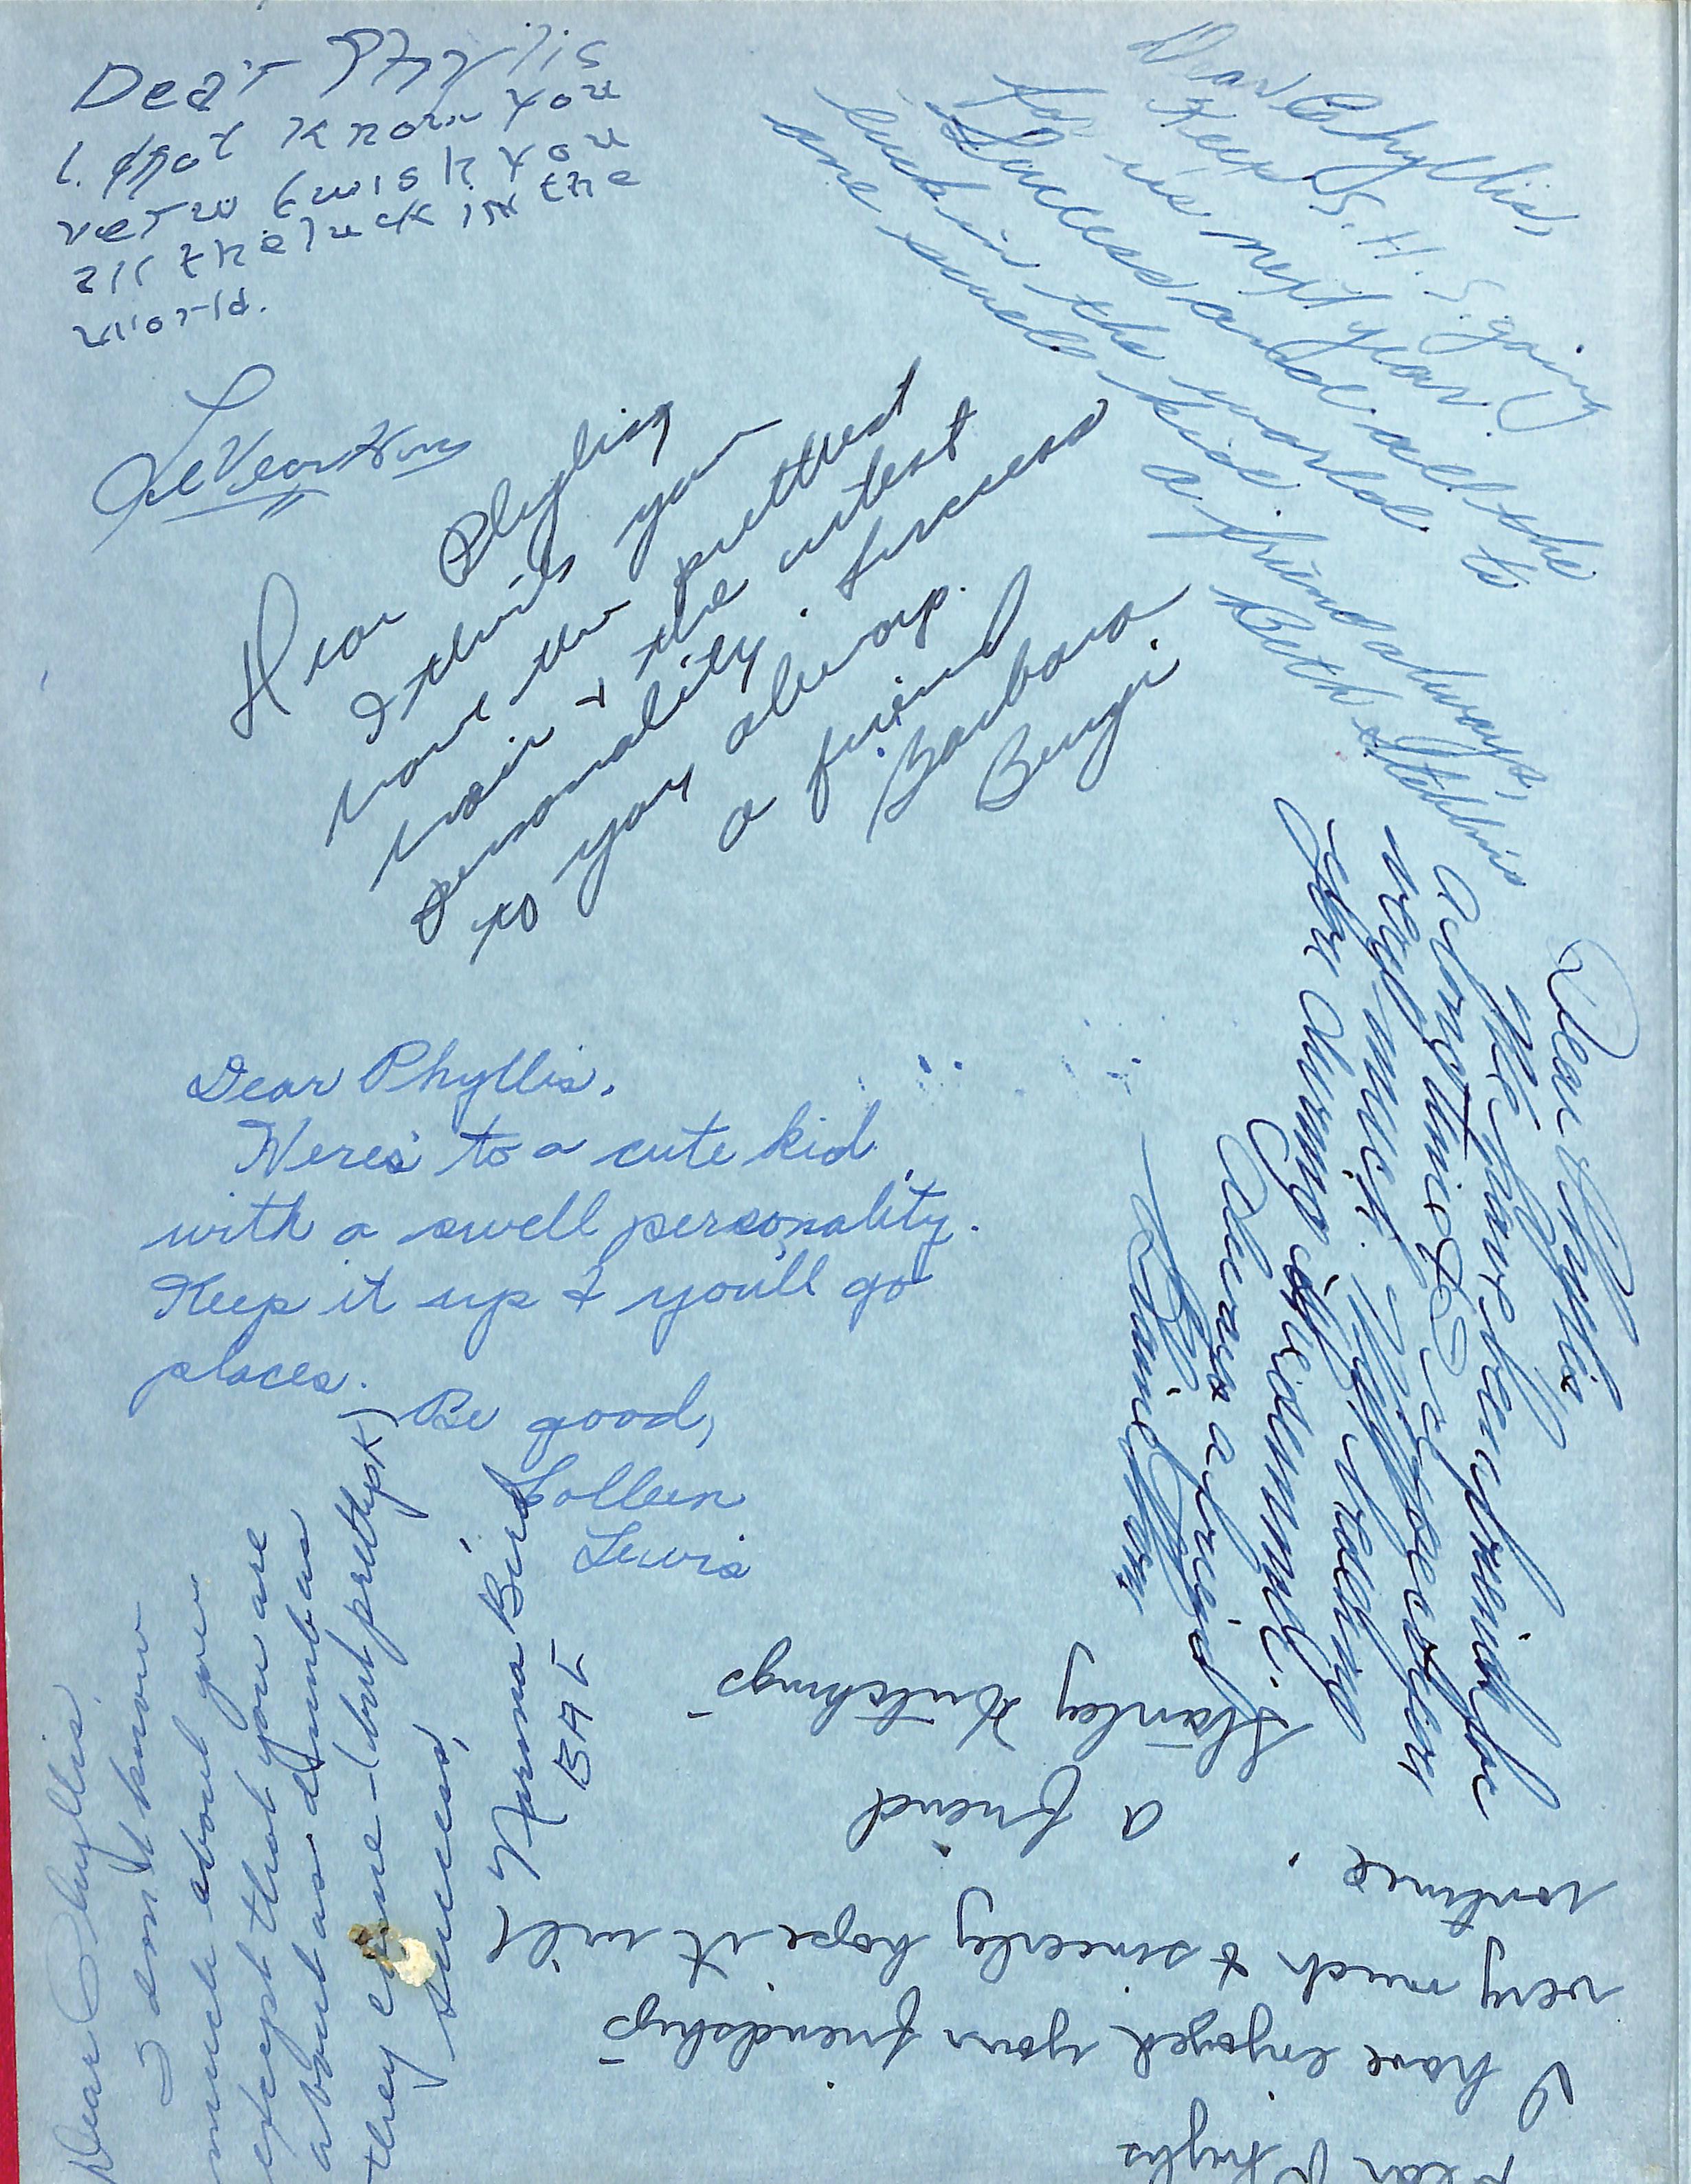 Dear Phyllis
I not know you
very wish you
all the luck in the
world.
Dear Phyllis,
Keep S.H.S. going
for us next year.
Success and all the
luck in the world to
one swell kid.
a friend always,
Beth Stebbins
Dear Phyliss
I think you
have the prettiest
hair & the cutest
personality. Success
to you always.
a friend
Barbara
Bungi
Dear Phyllis
We have been friends for
a long time &
Always a friend
Dear Phyllis,
Here's to a cute kid
with a swell personality.
Keep it up & you'll go
places.
Be good,
Colleen
Lewis
Dear Phyllis
I don't know
much about you
except that you are
about as dumb as
they come - (but pretty)
success,
Norma Bird
Dear Phylis
I have enjoyed your friendship
very much & sincerley hope it will
continue.
a friend
Stanley Hutchings